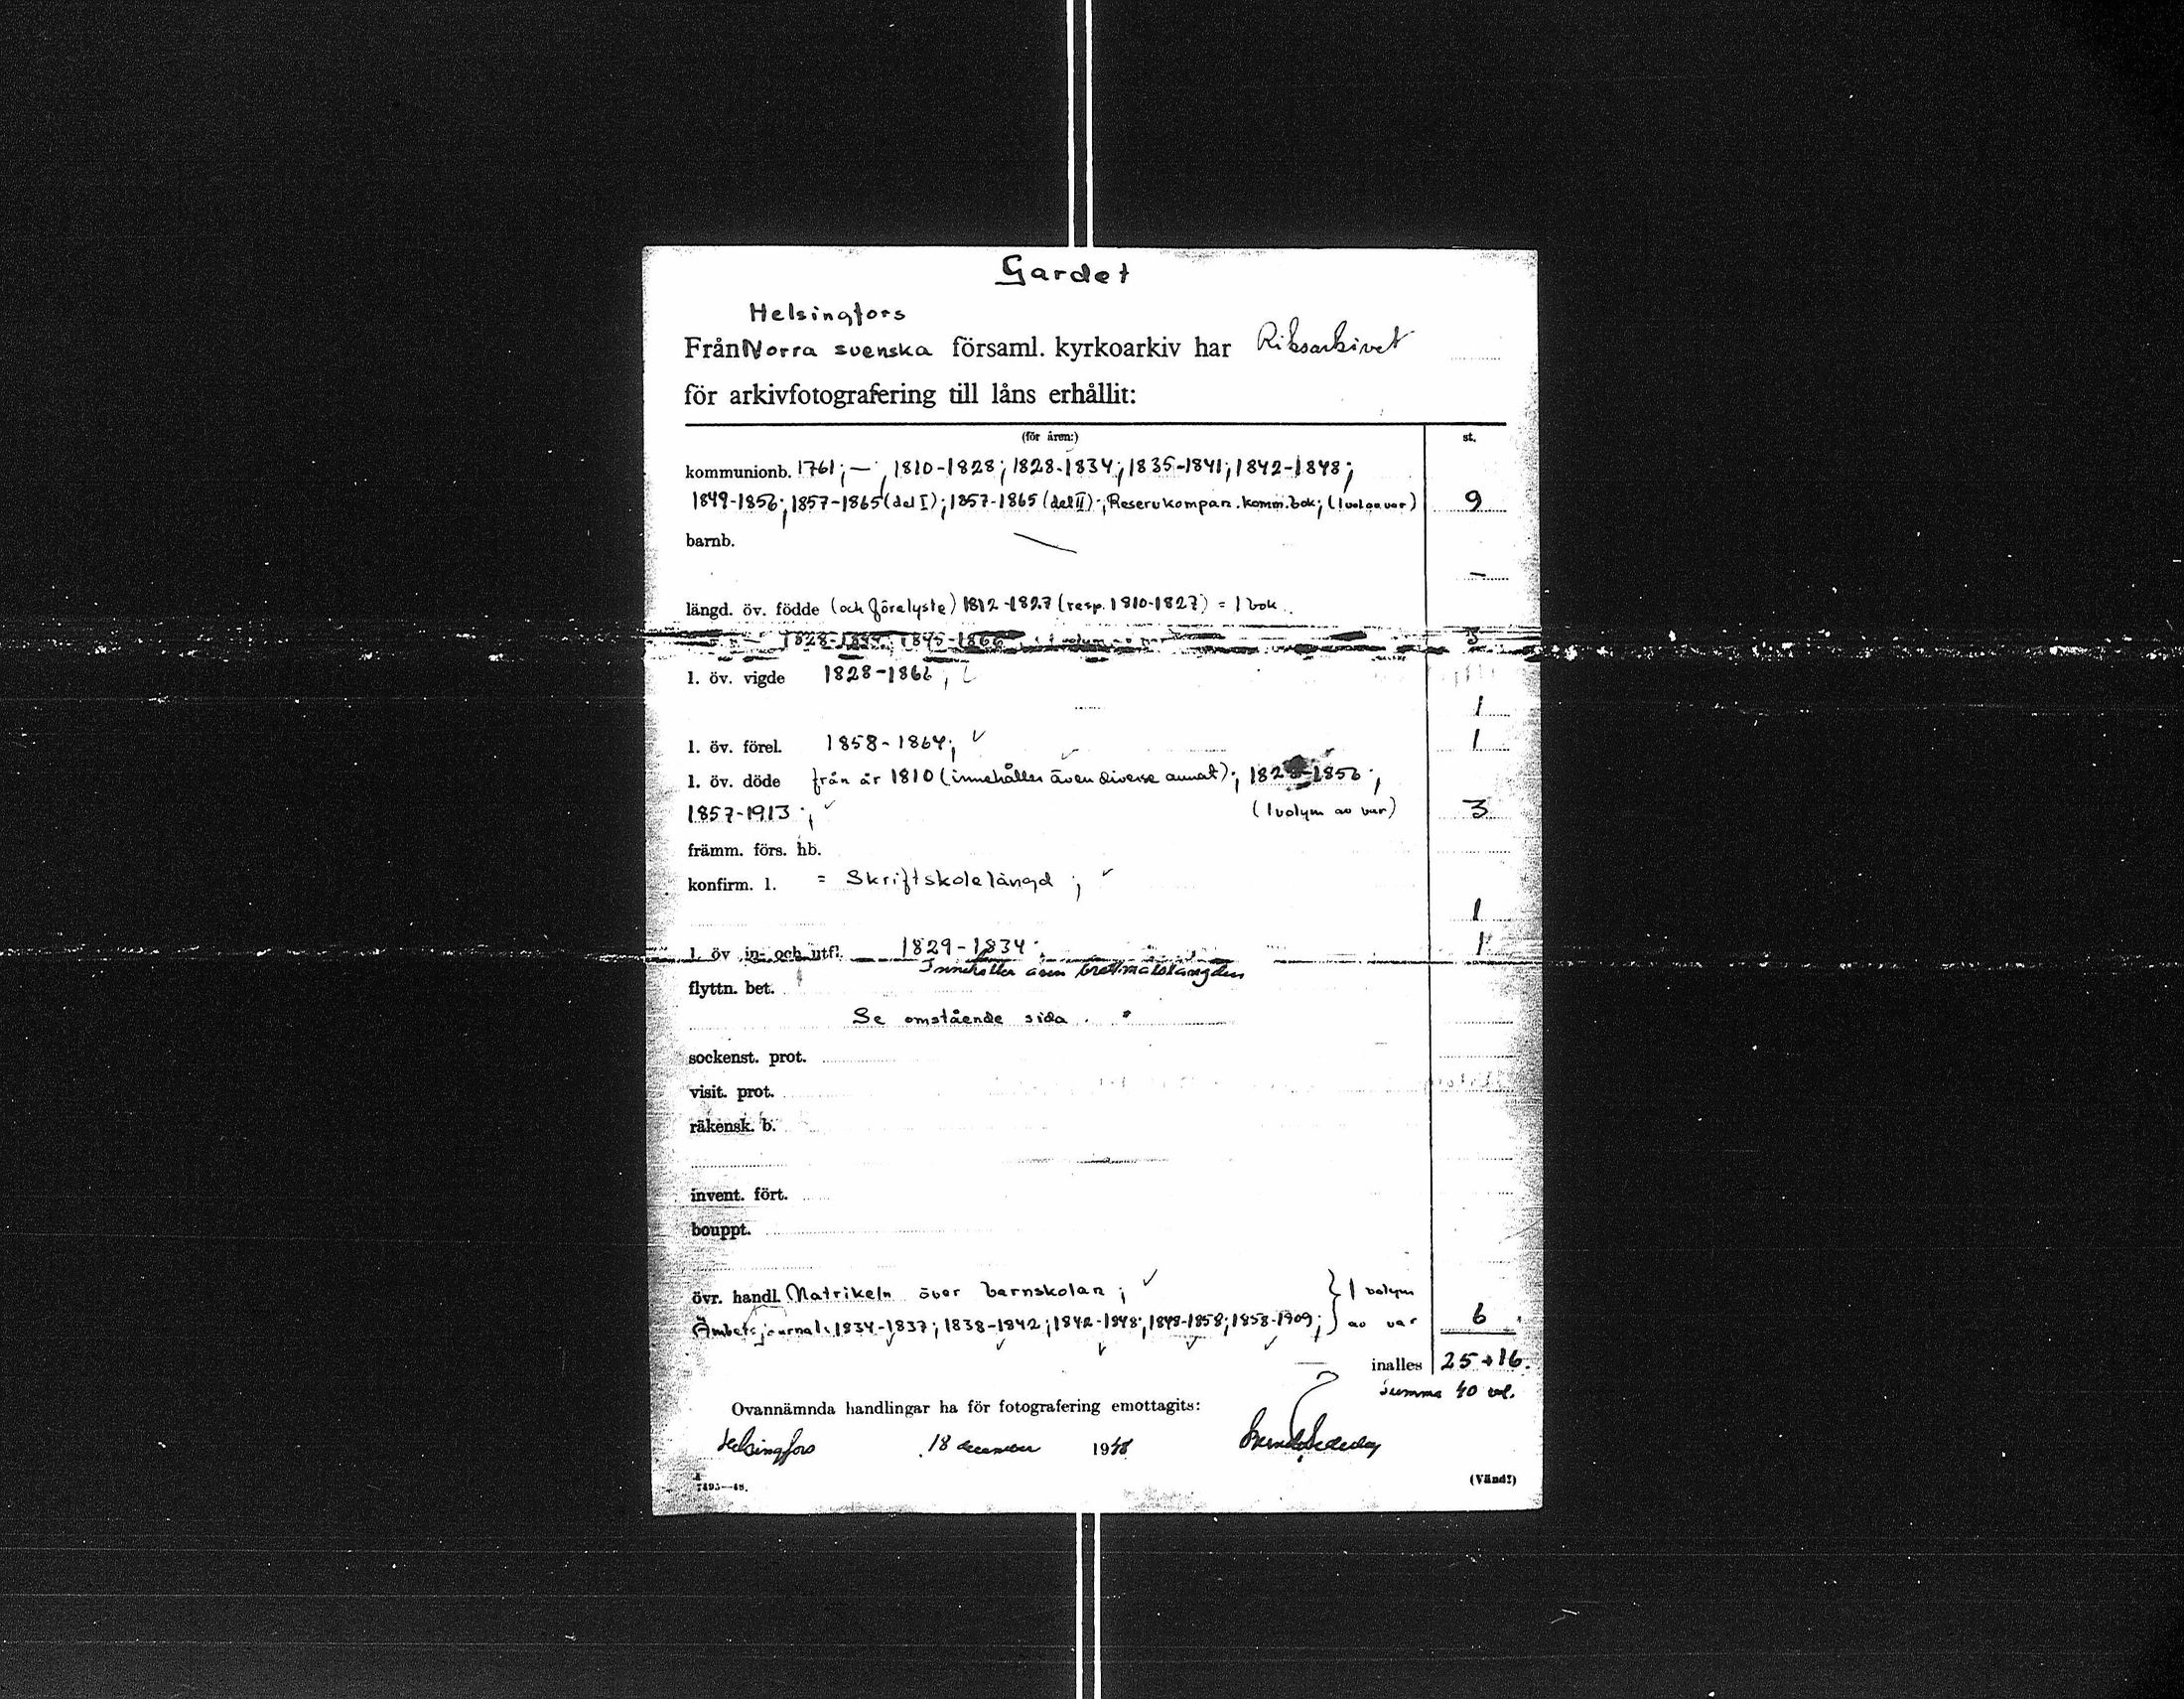 Gardet
Helsingfors
Från Norra svenska församl. kyrkoarkiv har Riksarkivet
för arkivfotografering till låns erhållit:
(för åren:) st.
kommunionb. 1761; — ; 1810-1828; 1828-1834; 1835-1841; 1842-1848;
1849-1856; 1857-1865 (del I); 1857-1865 (del II); Reservkompan. komm.bok; (1 vol av var) 9
barnb. —
längd. öv. födde (och förelyste) 1812-1827 (resp. 1810-1827) = 1 bok
1828-1844; 1845-1866 3
l. öv. vigde 1828-1866;
1
l. öv. förel. 1858-1864; 1
l. öv. döde från år 1810 (innehåller även diverse annat); 1828-1856;
1857-1913; (1 volym av var) 3
främm. förs. hb.
konfirm. l. = Skriftskolelängd;
1
l. öv in- och utfl. 1829-1834. 1
Innehåller även
flyttn. bet.
Se omstående sida.
sockenst. prot.
visit. prot.
räkensk. b.
invent. fört.
bouppt.
övr. handl. Matrikeln över barnskolan; } 1 volym
Ämbetsjournal: 1834-1837; 1838-1842; 1842-1848; 1848-1858; 1858-1909; } av var 6
inalles 25+16.
Summa 40 vol.
Ovannämnda handlingar ha för fotografering emottagits:
Helsingfors 18 december 1948
7495—48. (Vänd!)